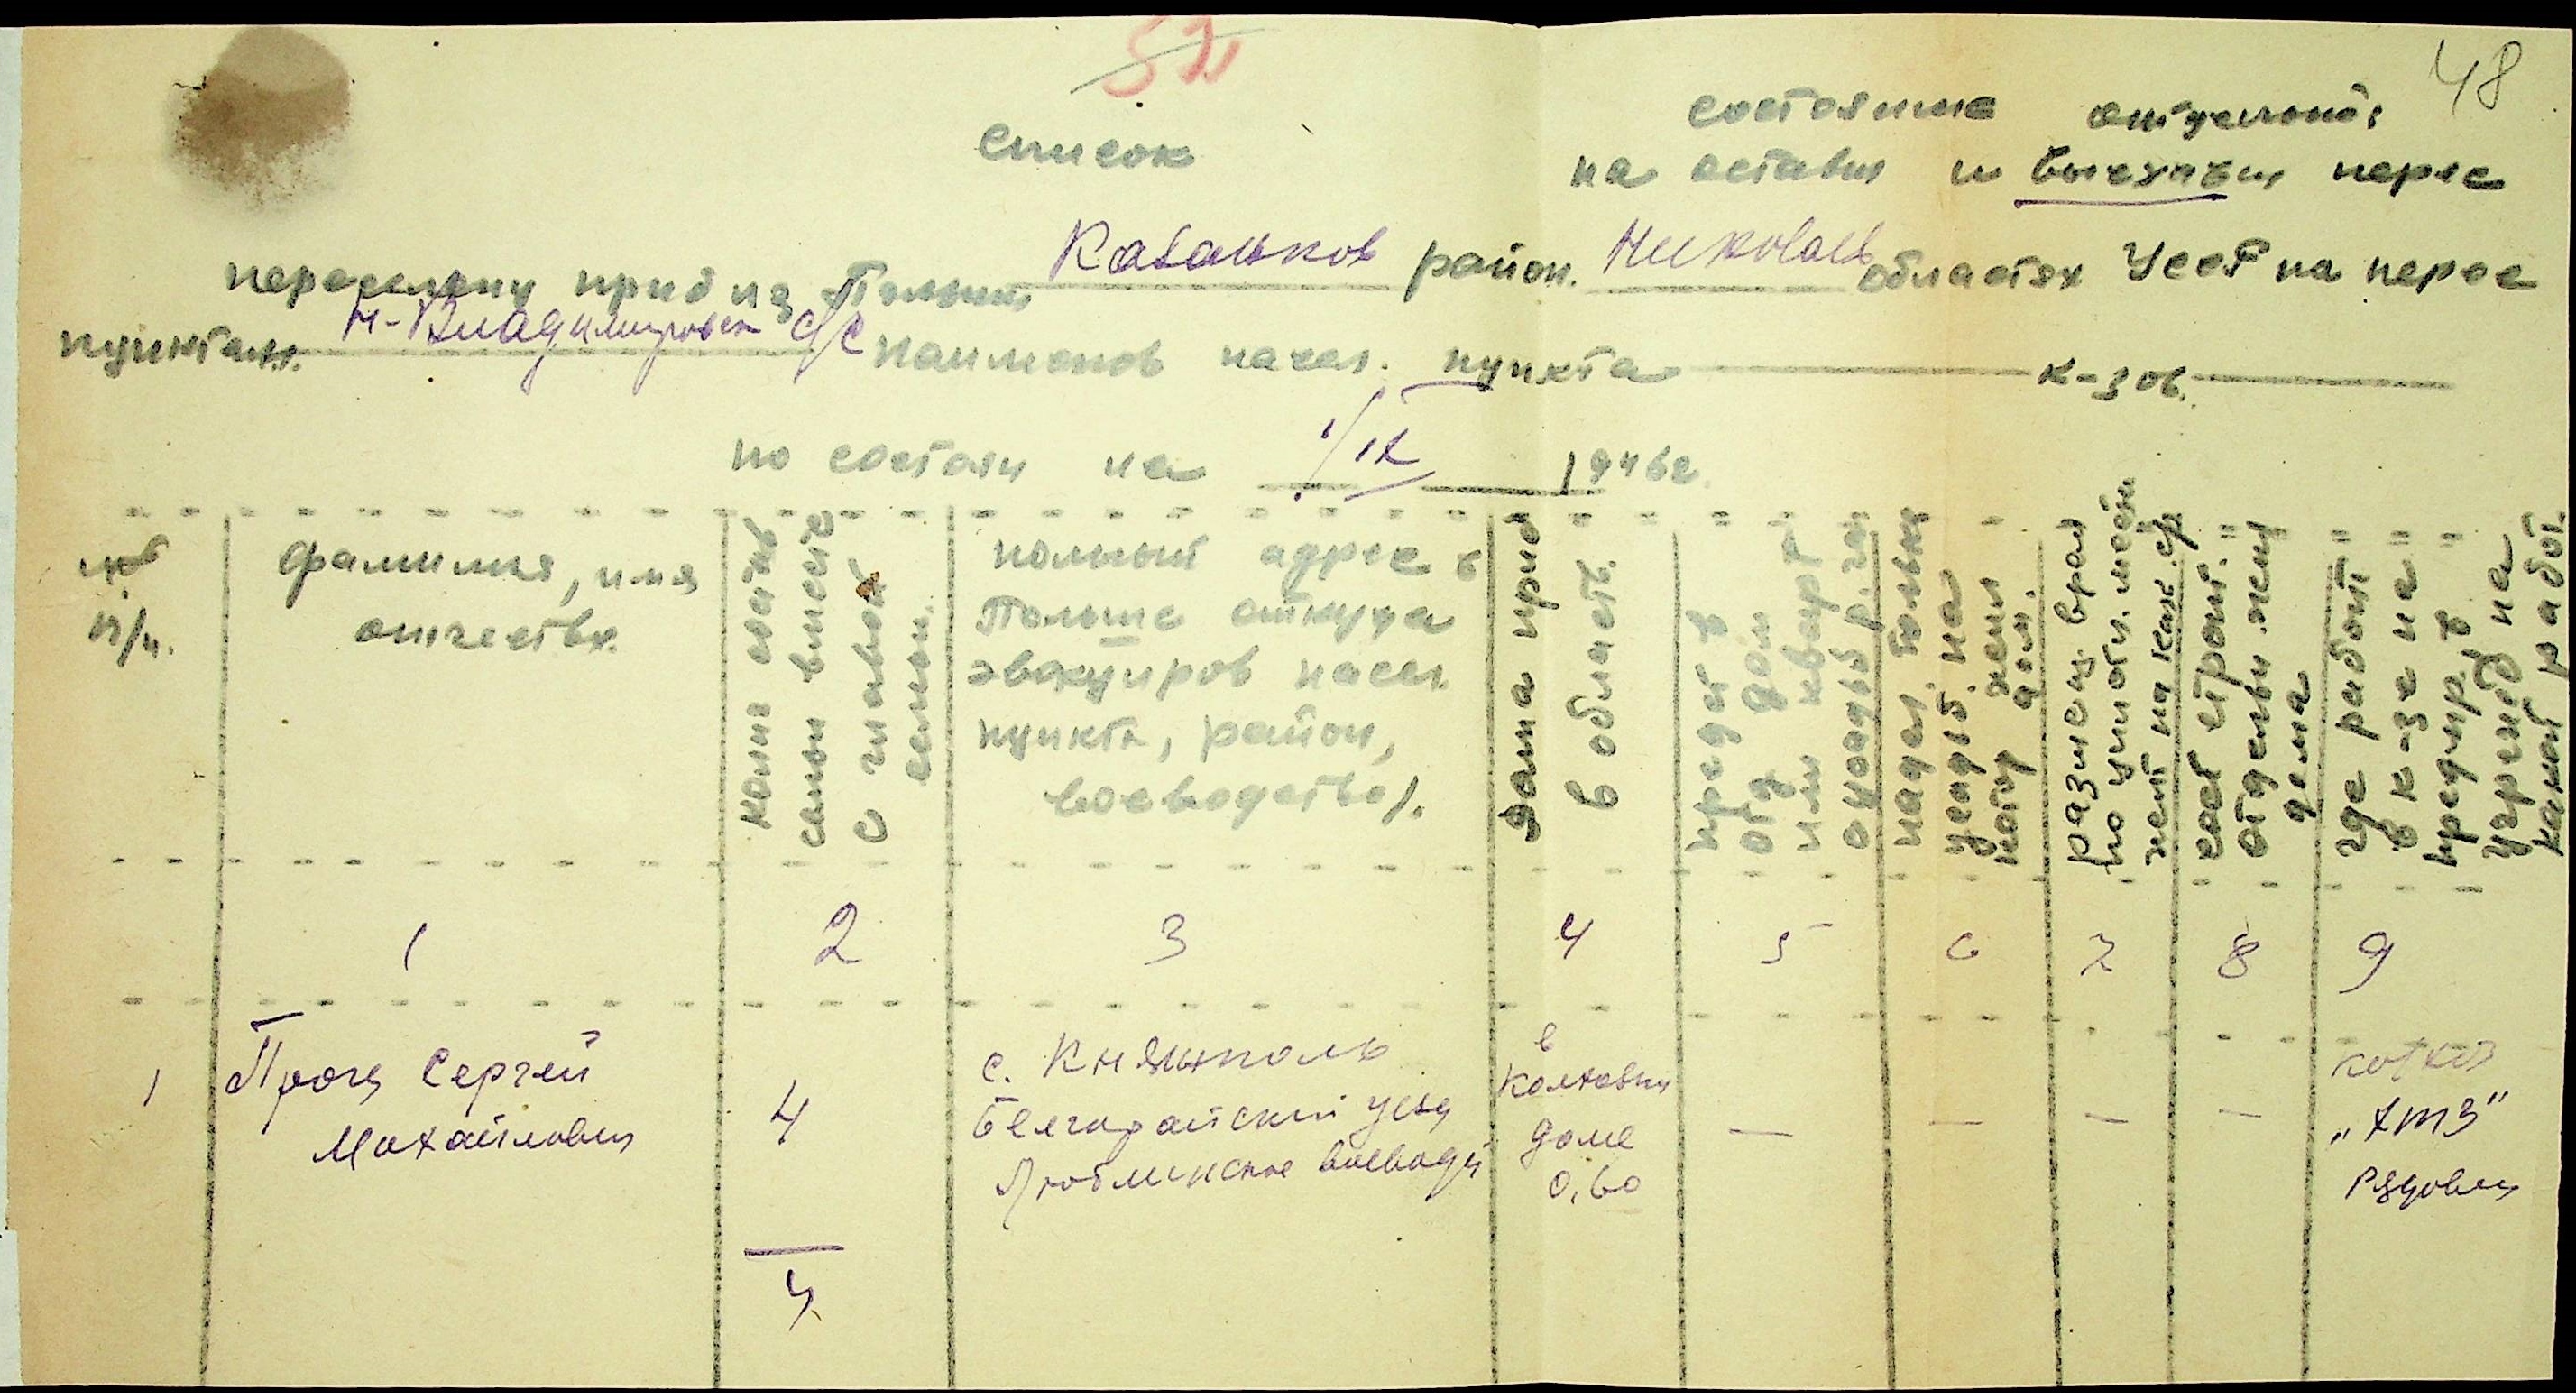 52
48
список
состояние отдельной:
на оставш и выехавш пересе
переселенц приб из Польши Казанков район. Николаев областях УССР на перес
пунктам. Н-Владимировск с/с наименов насел. пункта к-зов.
по состоян на 1/IX 1946г.
№№ п/п.
фамилия, имя
отчество.
колич состав
семьи вместе
с главой
семьи.
полный адрес в
Польше откуда
эвакуиров насел.
пункта, район,
воеводство/.
дата приб
в область.
предст в
отд дом
или кварт
о усадьб р. га
надел. только
усадьб. на
котор жел
дом.
размещ. врем
по уплотн. месн
сост строит.
отдельн жил
дома
где работ
в к-зе на
предпр. в
учрежд на
какой работ.
1 2 3 4 5 6 7 8 9
1 Проц Сергей
Михайлович
4
с. Княжполь
Белгорайский уезд
Люблинское воевод
в
колховни
доме
0,60
— — — —
колхоз
„ХТЗ"
Рядовец
4